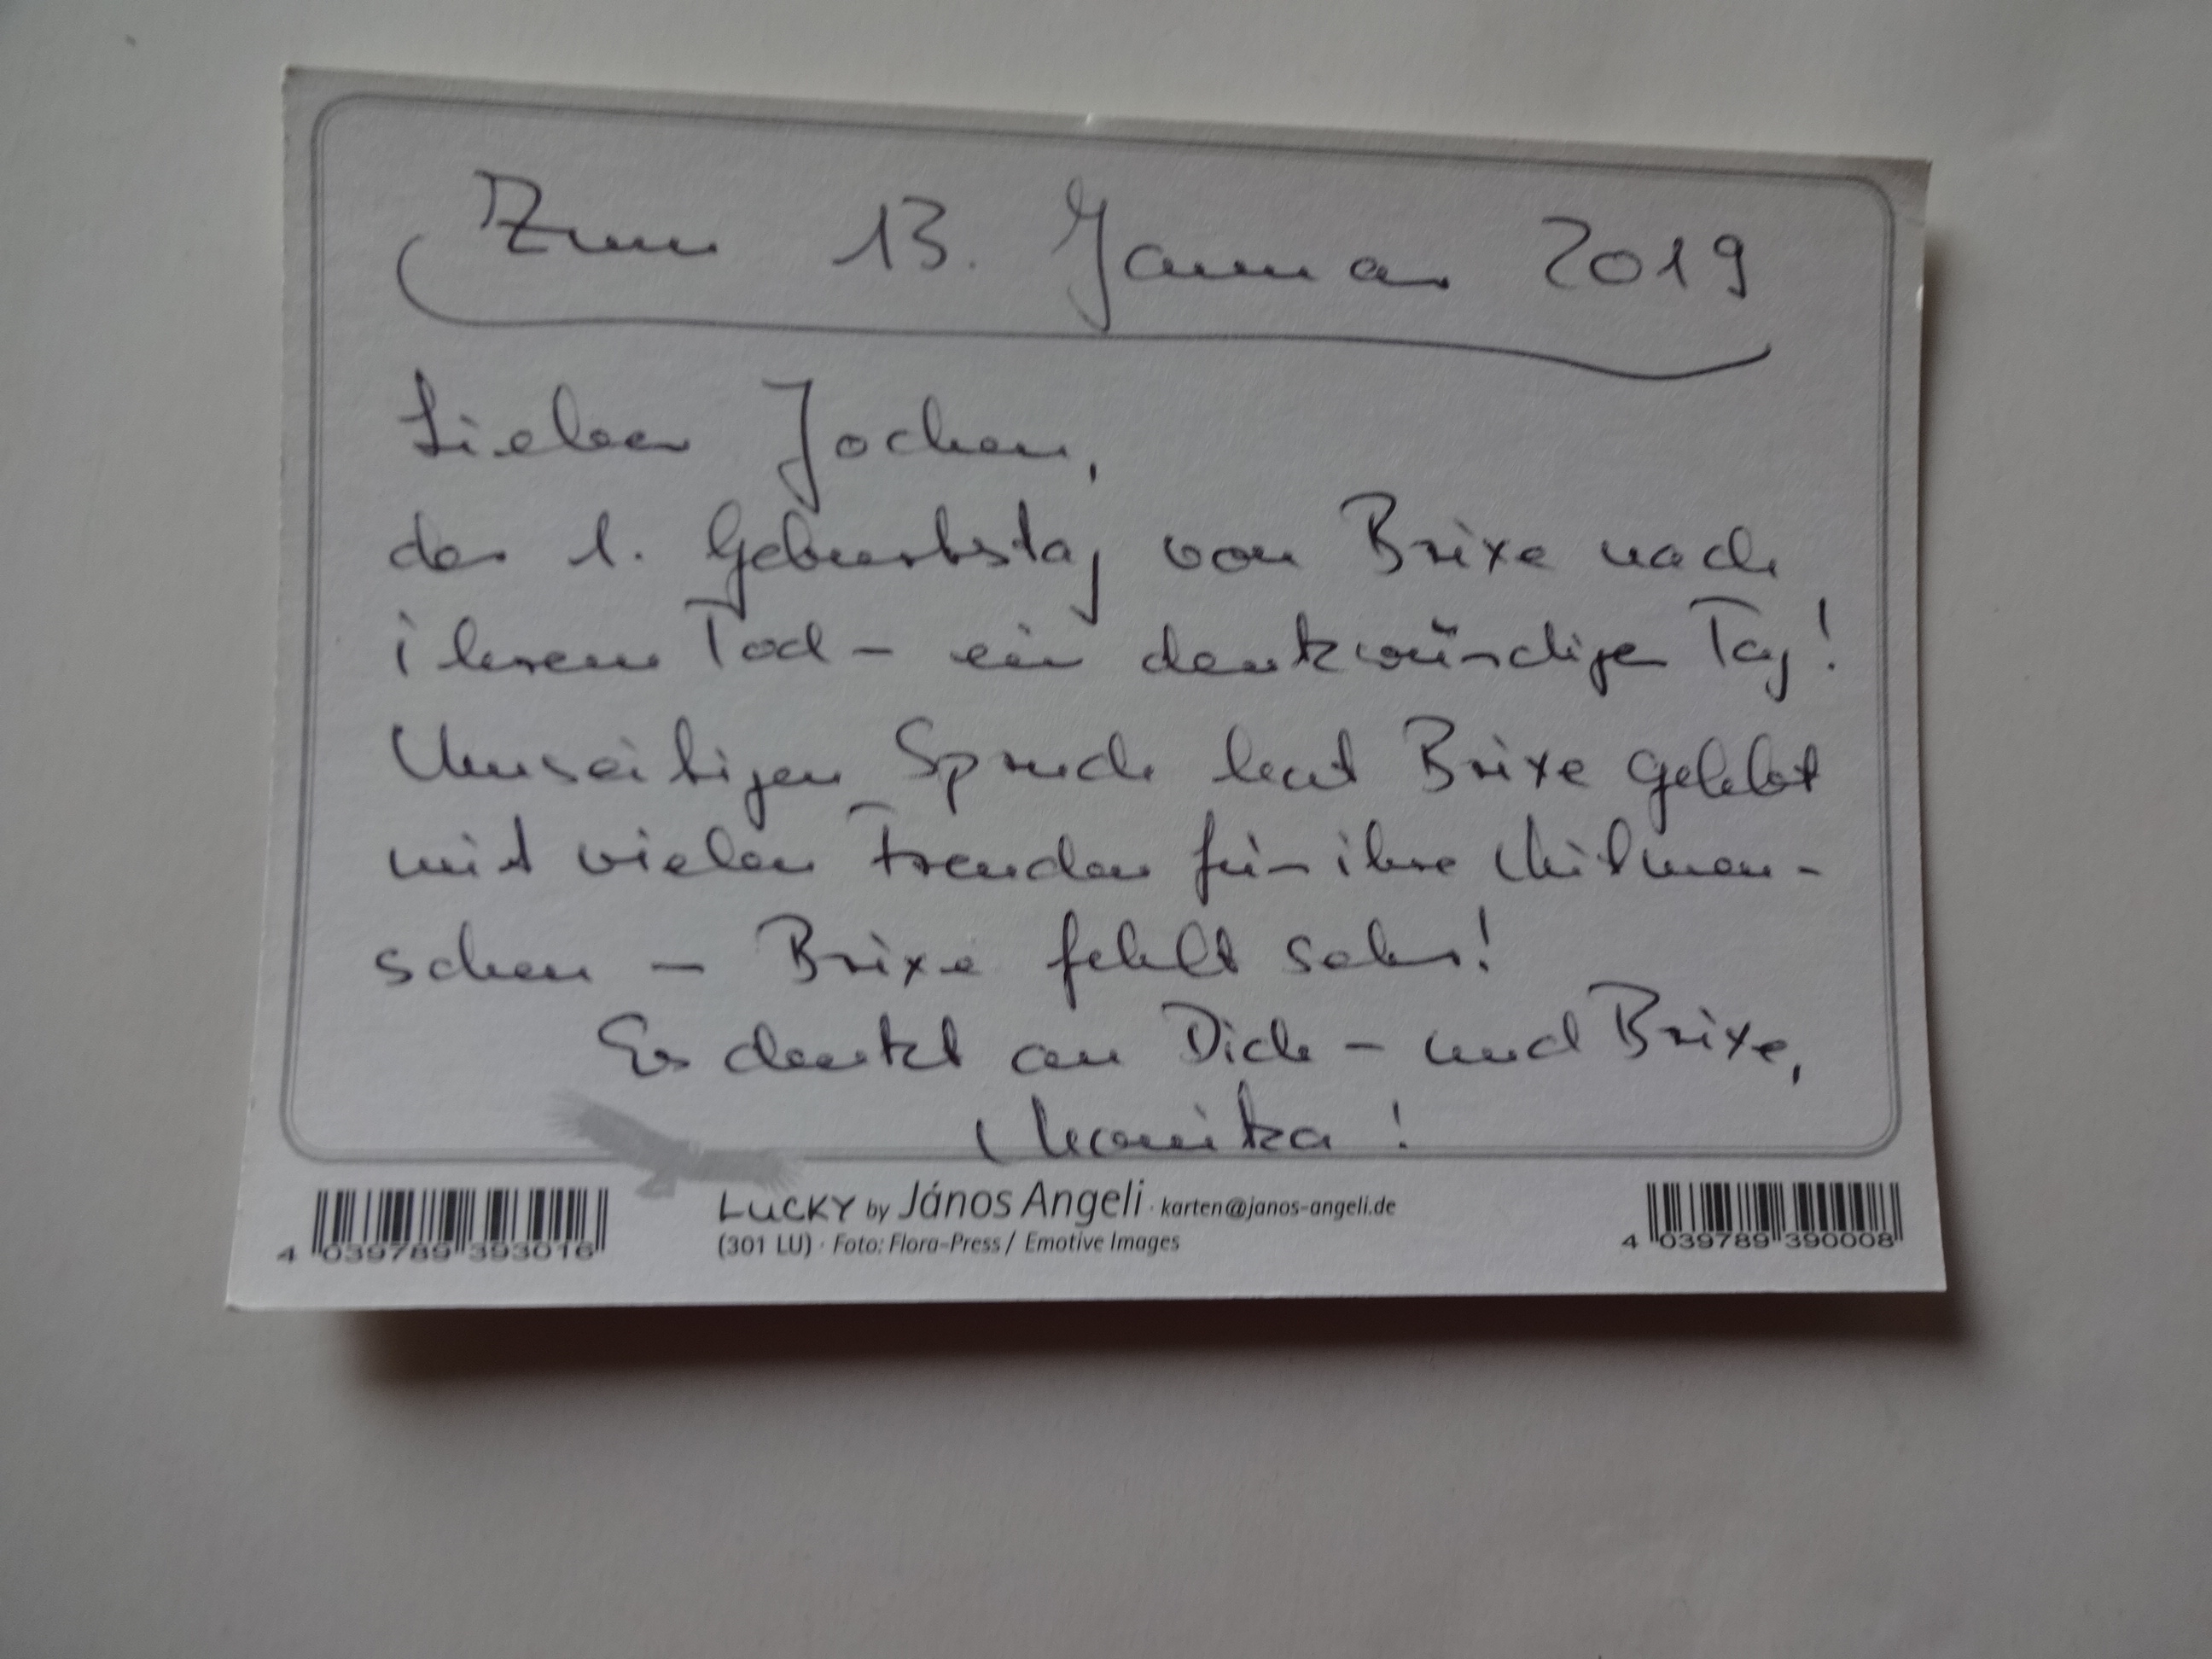 Zum 13. Januar 2019
Lieber Jochen,
der 1. Geburtstag von Brixe nach
ihrem Tod – ein denkwürdiger Tag!
Umseitigen Spruch hat Brixe gelebt
mit vielen Freuden für ihre Mitmen-
schen – Brixe fehlt sehr!
Es denkt an Dich – und Brixe,
Monika!
LUCKY by János Angeli · karten@janos-angeli.de
(301 LU) · Foto: Flora-Press / Emotive Images
4 039789 393016
4 039789 390008